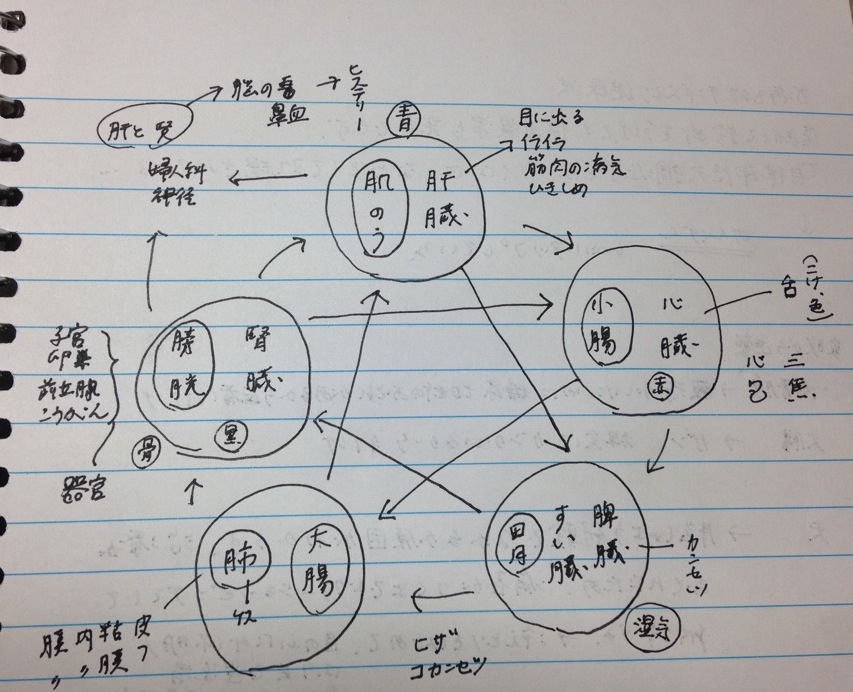 肝と賢
脳の病
鼻血
ヒステリー
婦人科
神径
青
肌のう
肝臓
目に出る
イライラ
筋肉の病気
小腸
心臓
赤
舌
心包
三焦
子宮
卵巣
前立腺
こうがん
器官
膀胱
腎臓
黒
骨
肺
大腸
皮フ
粘膜
内〃
膜〃
胃
すい臓
脾臓
カンセツ
湿気
ヒザ
コカンセツ